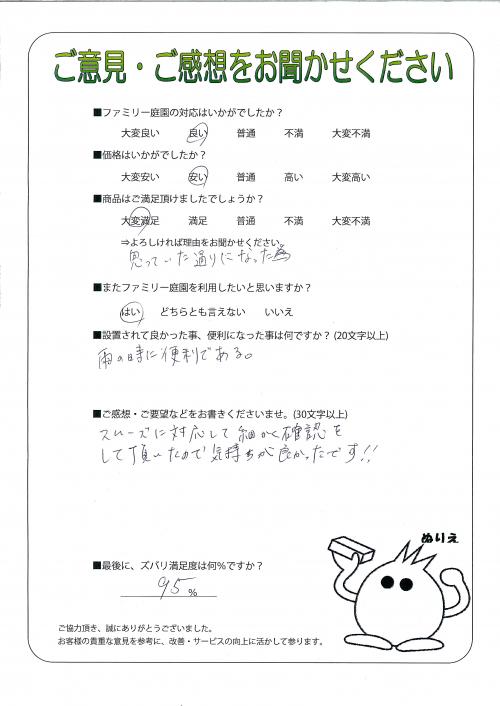 ご意見・ご感想をお聞かせください
■ファミリー庭園の対応はいかがでしたか？
大変良い 良い 普通 不満 大変不満
■価格はいかがでしたか？
大変安い 安い 普通 高い 大変高い
■商品はご満足頂けましたでしょうか？
大変満足 満足 普通 不満 大変不満
⇒よろしければ理由をお聞かせください。
思っていた通りになった為
■またファミリー庭園を利用したいと思いますか？
はい どちらとも言えない いいえ
■設置されて良かった事、便利になった事は何ですか？(20文字以上)
雨の時に便利である。
■ご感想・ご要望などをお書きくださいませ。(30文字以上)
スムーズに対応して細かく確認を
して頂いたので気持ちが良かったです!!
ぬりえ
■最後に、ズバリ満足度は何％ですか？
95％
ご協力頂き、誠にありがとうございました。
お客様の貴重な意見を参考に、改善・サービスの向上に活かして参ります。